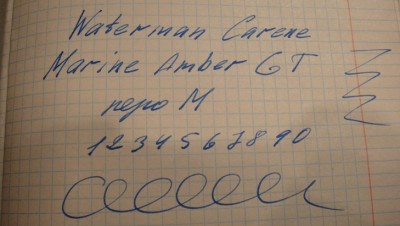 Waterman Carene
Marine Amber GT
перо M
1234567890